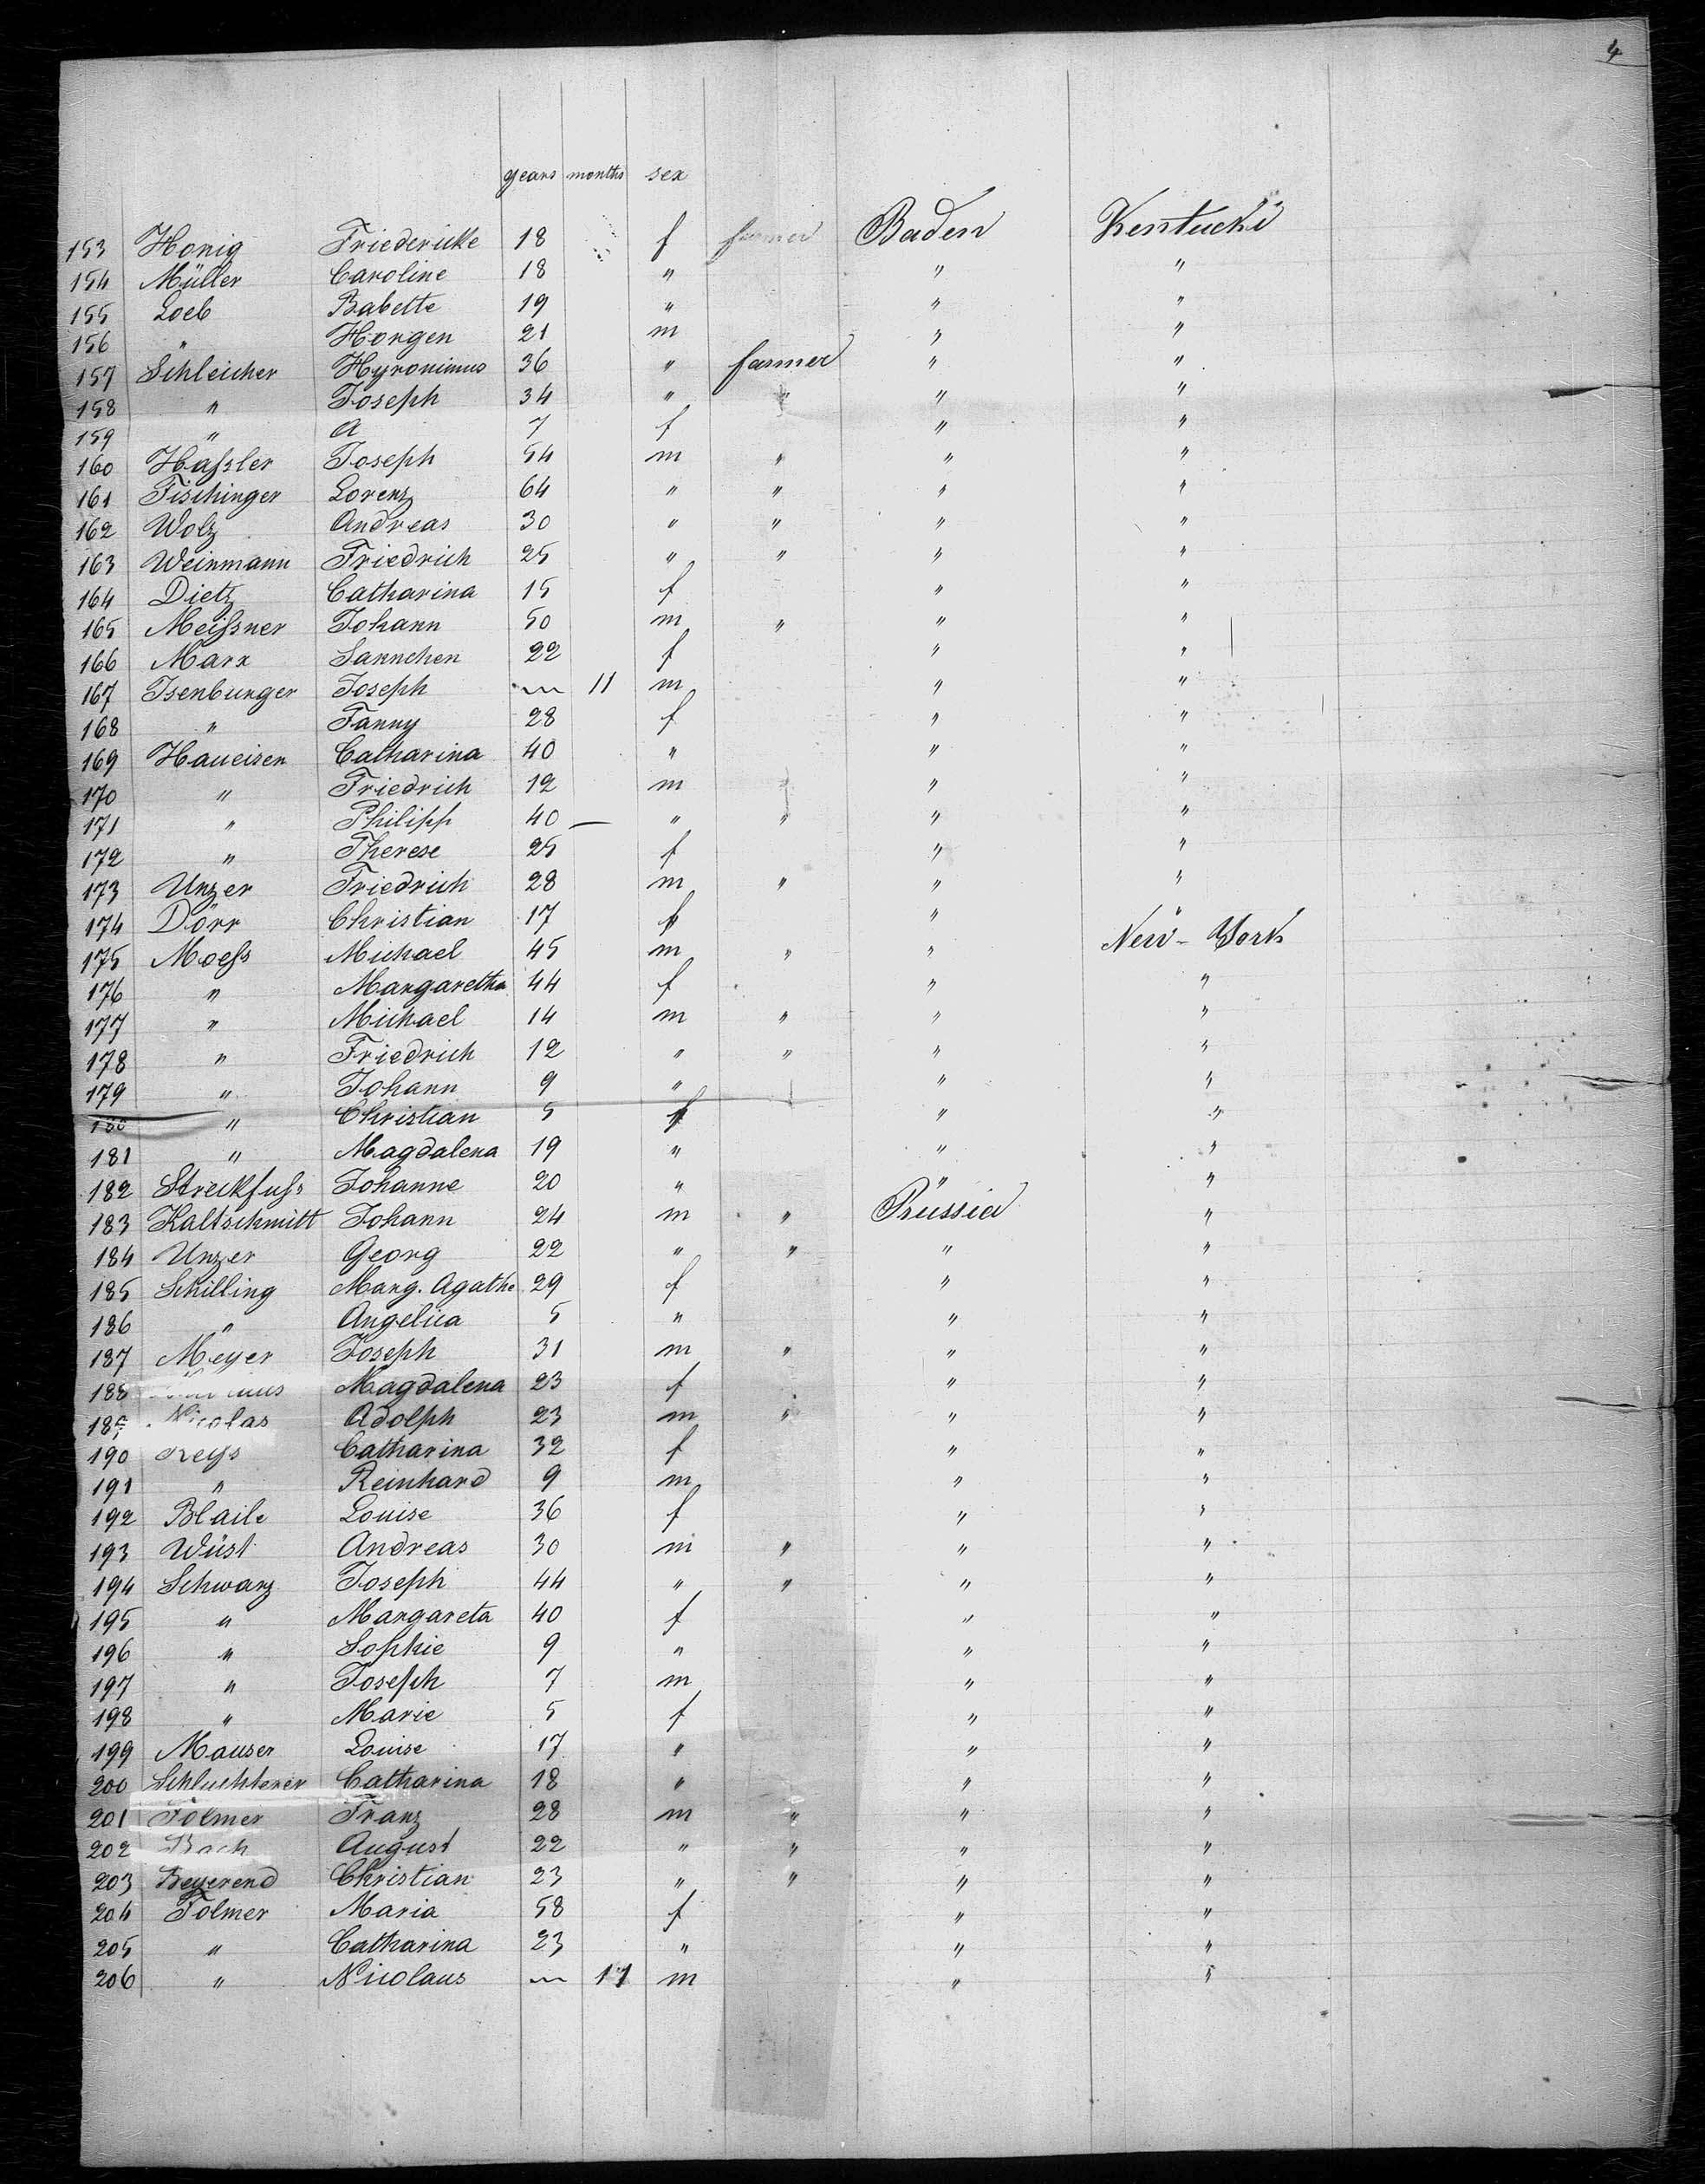 4
years months sex
153 Honig Friedericke 18 f farmer Baden Kentucki
154 Müller Caroline 18 " " "
155 Loeb Babette 19 " " "
156 " Horgen 21 m " "
157 Schleicher Hyronimus 36 " farmer " "
158 " Joseph 34 " " " "
159 " A 7 f " "
160 Haſsler Joseph 54 m " " "
161 Fischinger Lorenz 64 " " " "
162 Wolz Andreas 30 " " " "
163 Weinmann Friedrich 25 " " " "
164 Dietz Catharina 15 f " "
165 Meiſsner Johann 50 m " " "
166 Marx Sannchen 22 f " "
167 Isenburger Joseph 11 m " "
168 " Fanny 28 f " "
169 Haueisen Catharina 40 " " "
170 " Friedrich 12 m " " "
171 " Philipp 40 — " " " "
172 " Therese 25 f " "
173 Unzer Friedrich 28 m " " "
174 Dörr Christian 17 f " "
175 Moeſs Michael 45 m " " New-York
176 " Margaretha 44 f " "
177 " Michael 14 m " " "
178 " Friedrich 12 " " " "
179 " Johann 9 " " "
180 " Christian 5 f " "
181 " Magdalena 19 " " "
182 Streckfuſs Johanne 20 " " "
183 Kaltschmitt Johann 24 m " Prussia "
184 Unzer Georg 22 " " " "
185 Schilling Marg. Agathe 29 f " "
186 " Angelica 5 " " "
187 Meyer Joseph 31 m " " "
188 Magdalena 23 f " "
189 Nicolas Adolph 23 m " " "
190 Reyſs Catharina 32 f " "
191 " Reinhard 9 m " "
192 Blaile Louise 36 f " "
193 Wüst Andreas 30 m " " "
194 Schwarz Joseph 44 " " " "
195 " Margareta 40 f " "
196 " Sophie 9 " " "
197 " Joseph 7 m " "
198 " Marie 5 f " "
199 Mauser Louise 17 " " "
200 Schluchterer Catharina 18 " " "
201 Folmer Franz 28 m " " "
202 Bach August 22 " " " "
203 Beyerend Christian 23 " " " "
204 Folmer Maria 58 f " "
205 " Catharina 23 " " "
206 " Nicolaus 11 m " "